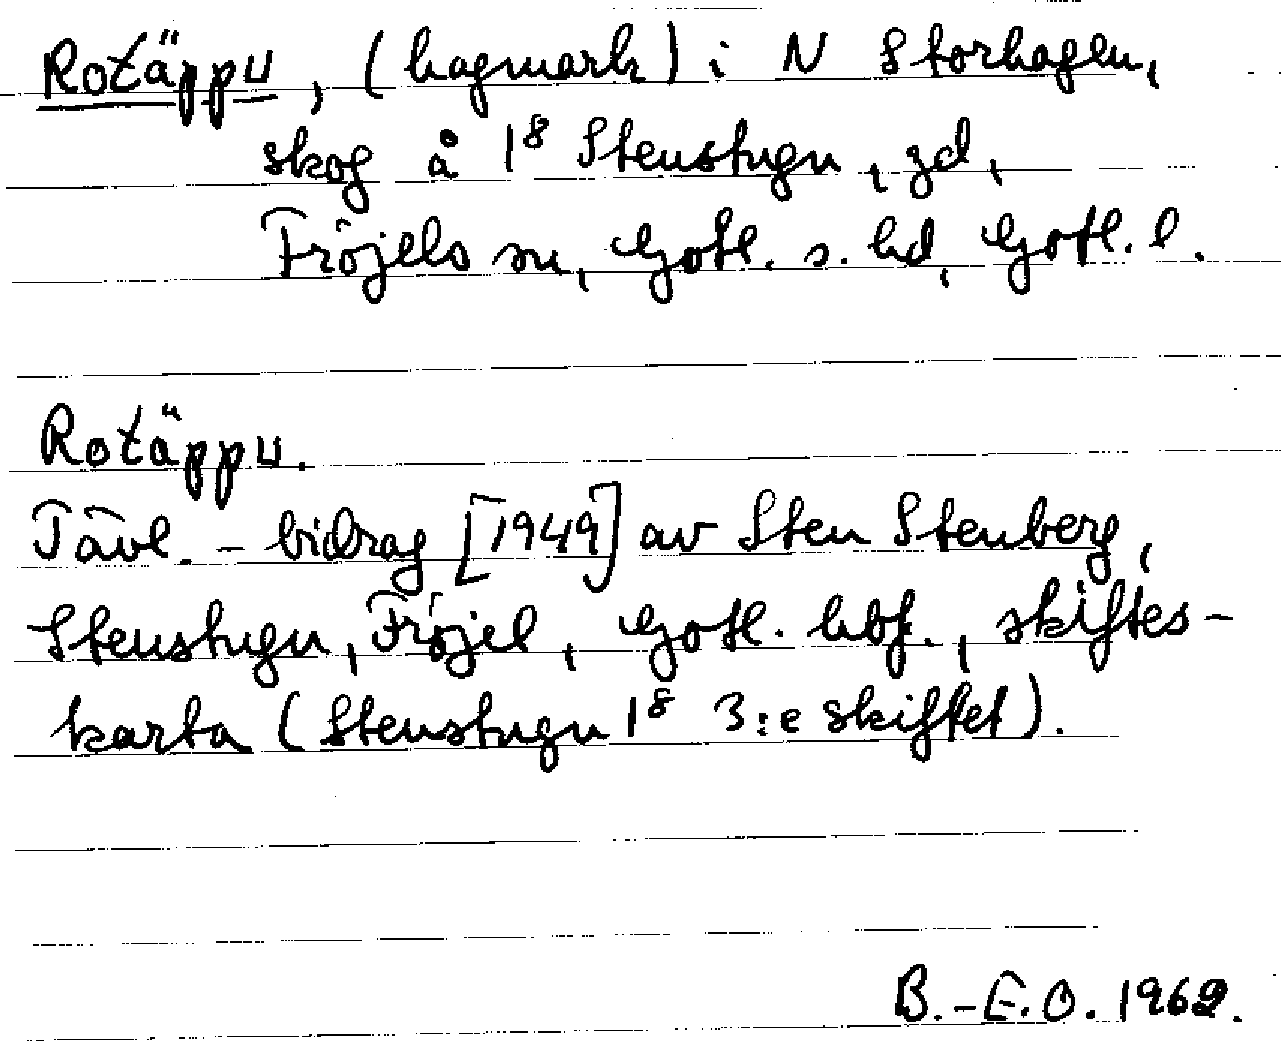 Rotäppu, (hagmark) i N Storhagen,
skog å 1⁸ Stenstugu, gd,
Fröjels sn, Gotl. s. hd, Gotl. l.
Rotäppu.
Tävl.-bidrag [1949] av Sten Stenberg,
Stenstugu, Fröjel, Gotl. hbf., skiftes-
karta (Stenstugu 1⁸ 3:e skiftet).
B.-E.O. 1962.